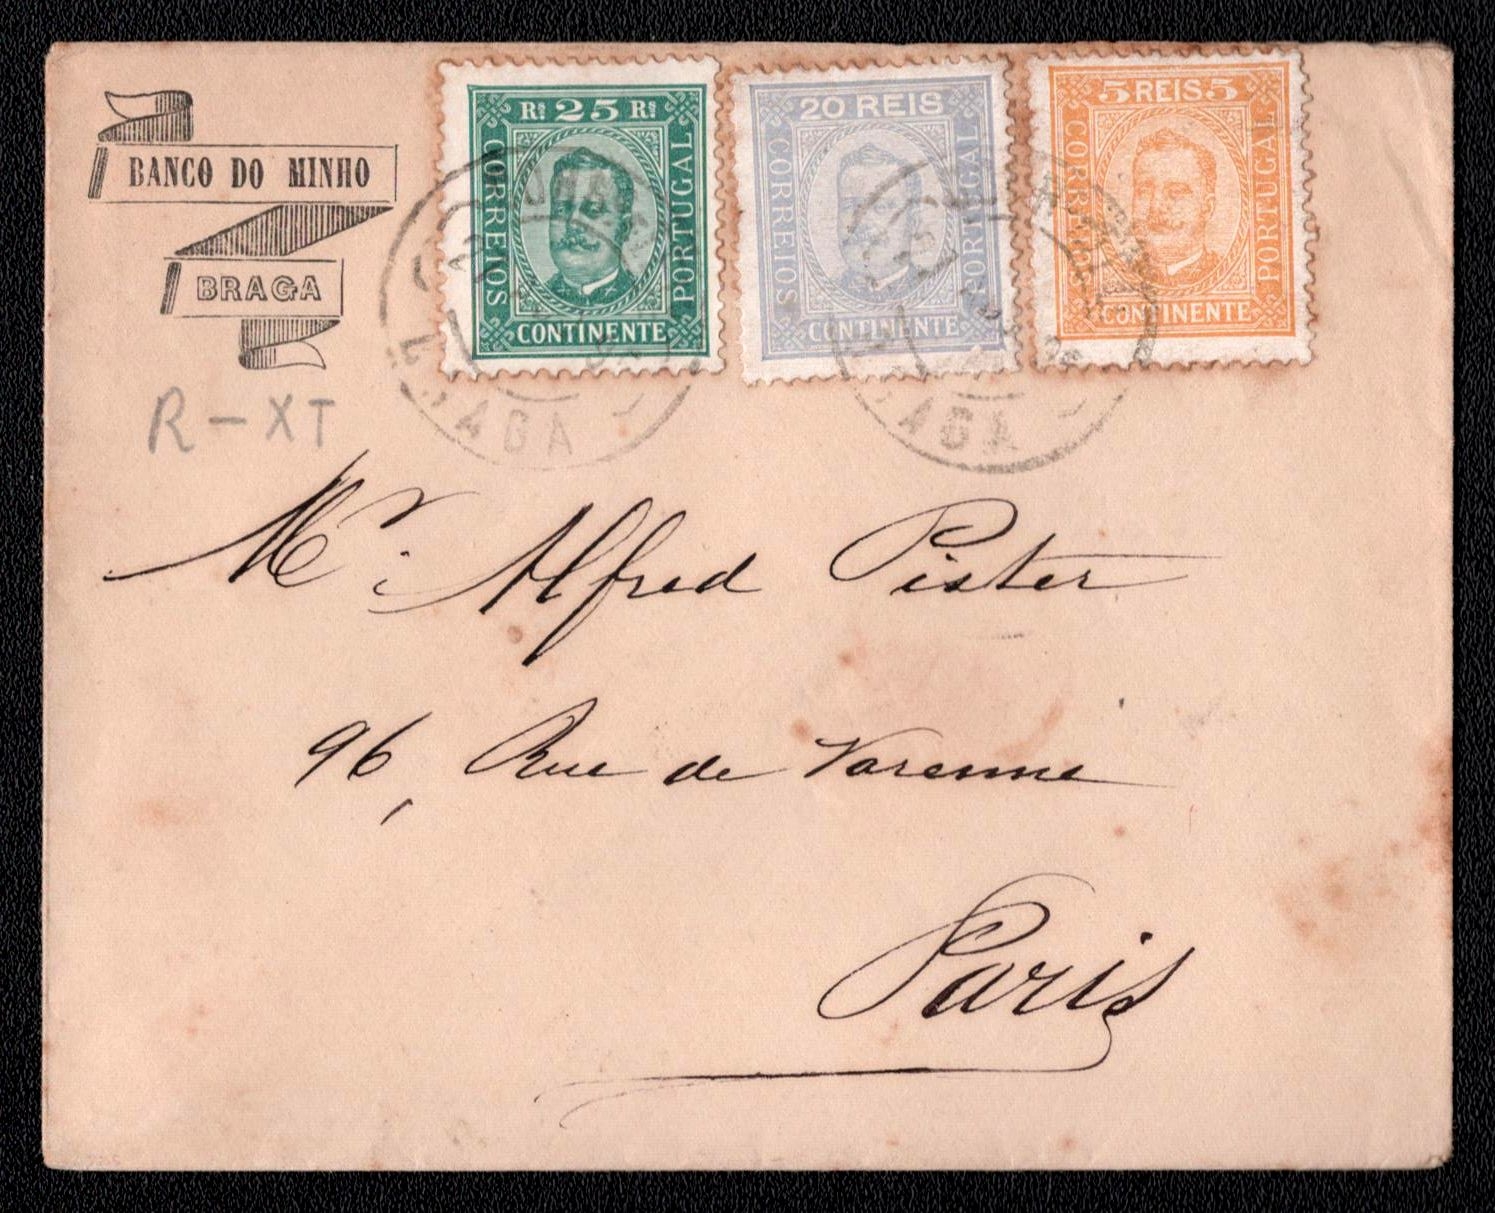 BANCO DO MINHO
BRAGA
R-XT
Rs 25 Rs
CORREIOS
PORTUGAL
CONTINENTE
20 REIS
CORREIOS
PORTUGAL
CONTINENTE
5 REIS 5
CORREIOS
PORTUGAL
CONTINENTE
BRAGA
BRAGA
Mr. Alfred Pister
96, Rue de Varenne
Paris